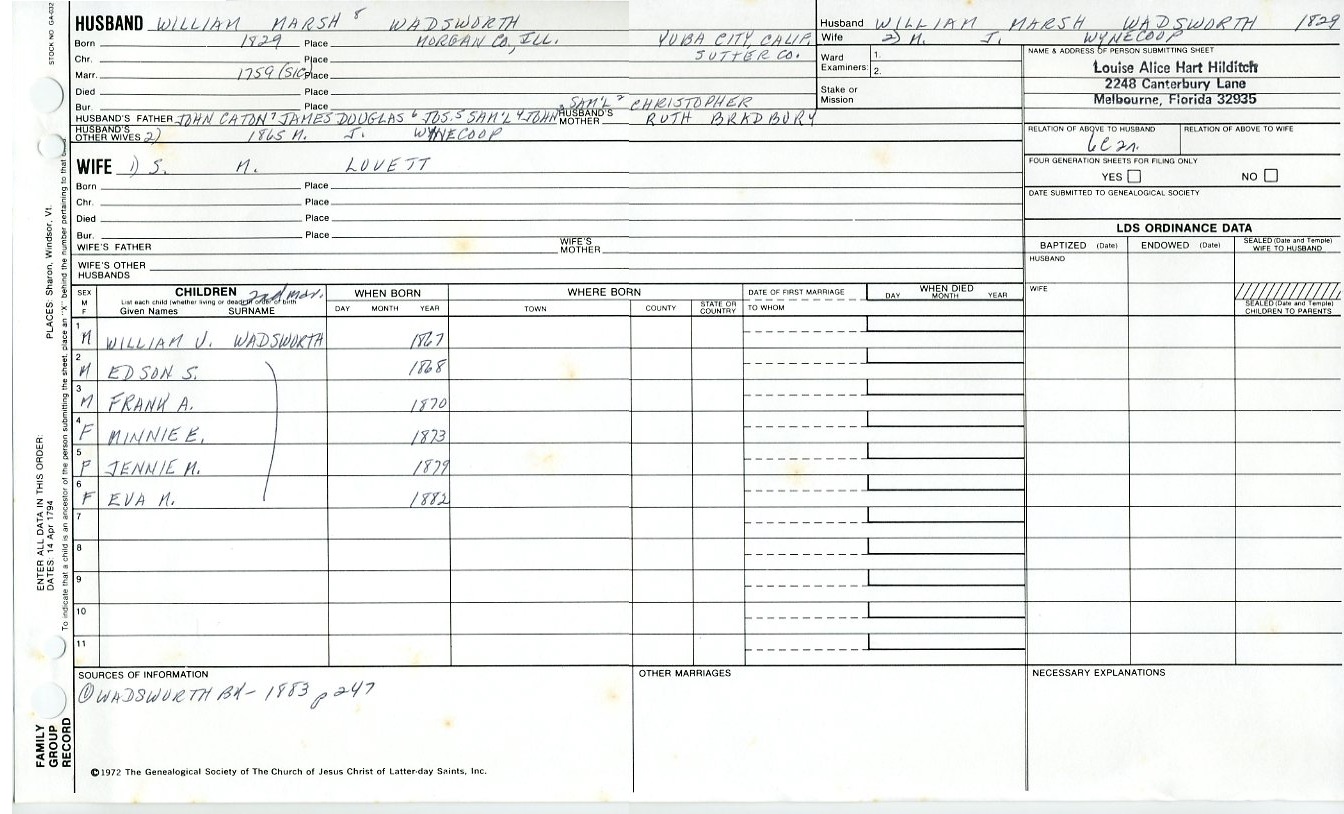 STOCK NO. GA-032
HUSBAND WILLIAM MARSH 8 WADSWORTH
Born 1829 Place MORGAN CO., ILL. YUBA CITY, CALIF.
Chr. Place SUTTER CO.
Marr. 1759 (SIC) Place
Died Place
Bur. Place SAM'L 2 CHRISTOPHER
HUSBAND'S FATHER JOHN CATON 7 JAMES DOUGLAS 6 JOS. 5 SAM'L 4 JOHN 3 HUSBAND'S MOTHER RUTH BRADBURY
HUSBAND'S OTHER WIVES 2) 1865 M. J. WYNECOOP
Husband WILLIAM MARSH WADSWORTH 1829
Wife 2) M. J. WYNECOOP
Ward Examiners: 1.
2.
Stake or Mission
NAME & ADDRESS OF PERSON SUBMITTING SHEET
Louise Alice Hart Hilditch
2248 Canterbury Lane
Melbourne, Florida 32935
RELATION OF ABOVE TO HUSBAND RELATION OF ABOVE TO WIFE
6C2r.
FOUR GENERATION SHEETS FOR FILING ONLY
YES NO
DATE SUBMITTED TO GENEALOGICAL SOCIETY
WIFE 1) S. M. LOVETT
Born Place
Chr. Place
Died Place
Bur. Place
WIFE'S FATHER WIFE'S MOTHER
WIFE'S OTHER HUSBANDS
LDS ORDINANCE DATA
BAPTIZED (Date) ENDOWED (Date) SEALED (Date and Temple) WIFE TO HUSBAND
HUSBAND
WIFE
SEALED (Date and Temple) CHILDREN TO PARENTS
SEX M F CHILDREN 2nd mar. WHEN BORN WHERE BORN DATE OF FIRST MARRIAGE WHEN DIED
List each child (whether living or dead) in order of birth
Given Names SURNAME DAY MONTH YEAR TOWN COUNTY STATE OR COUNTRY TO WHOM DAY MONTH YEAR
1 M WILLIAM J. WADSWORTH 1867
2 M EDSON S. 1868
3 M FRANK A. 1870
4 F MINNIE E. 1873
5 F JENNIE M. 1879
6 F EVA M. 1882
7
8
9
10
11
SOURCES OF INFORMATION OTHER MARRIAGES NECESSARY EXPLANATIONS
① WADSWORTH BK - 1883 p 247
©1972 The Genealogical Society of The Church of Jesus Christ of Latter-day Saints, Inc.
FAMILY GROUP RECORD
ENTER ALL DATA IN THIS ORDER:
DATES: 14 Apr 1794 PLACES: Sharon, Windsor, Vt.
To indicate that a child is an ancestor of the person submitting the sheet, place an "X" behind the number pertaining to that